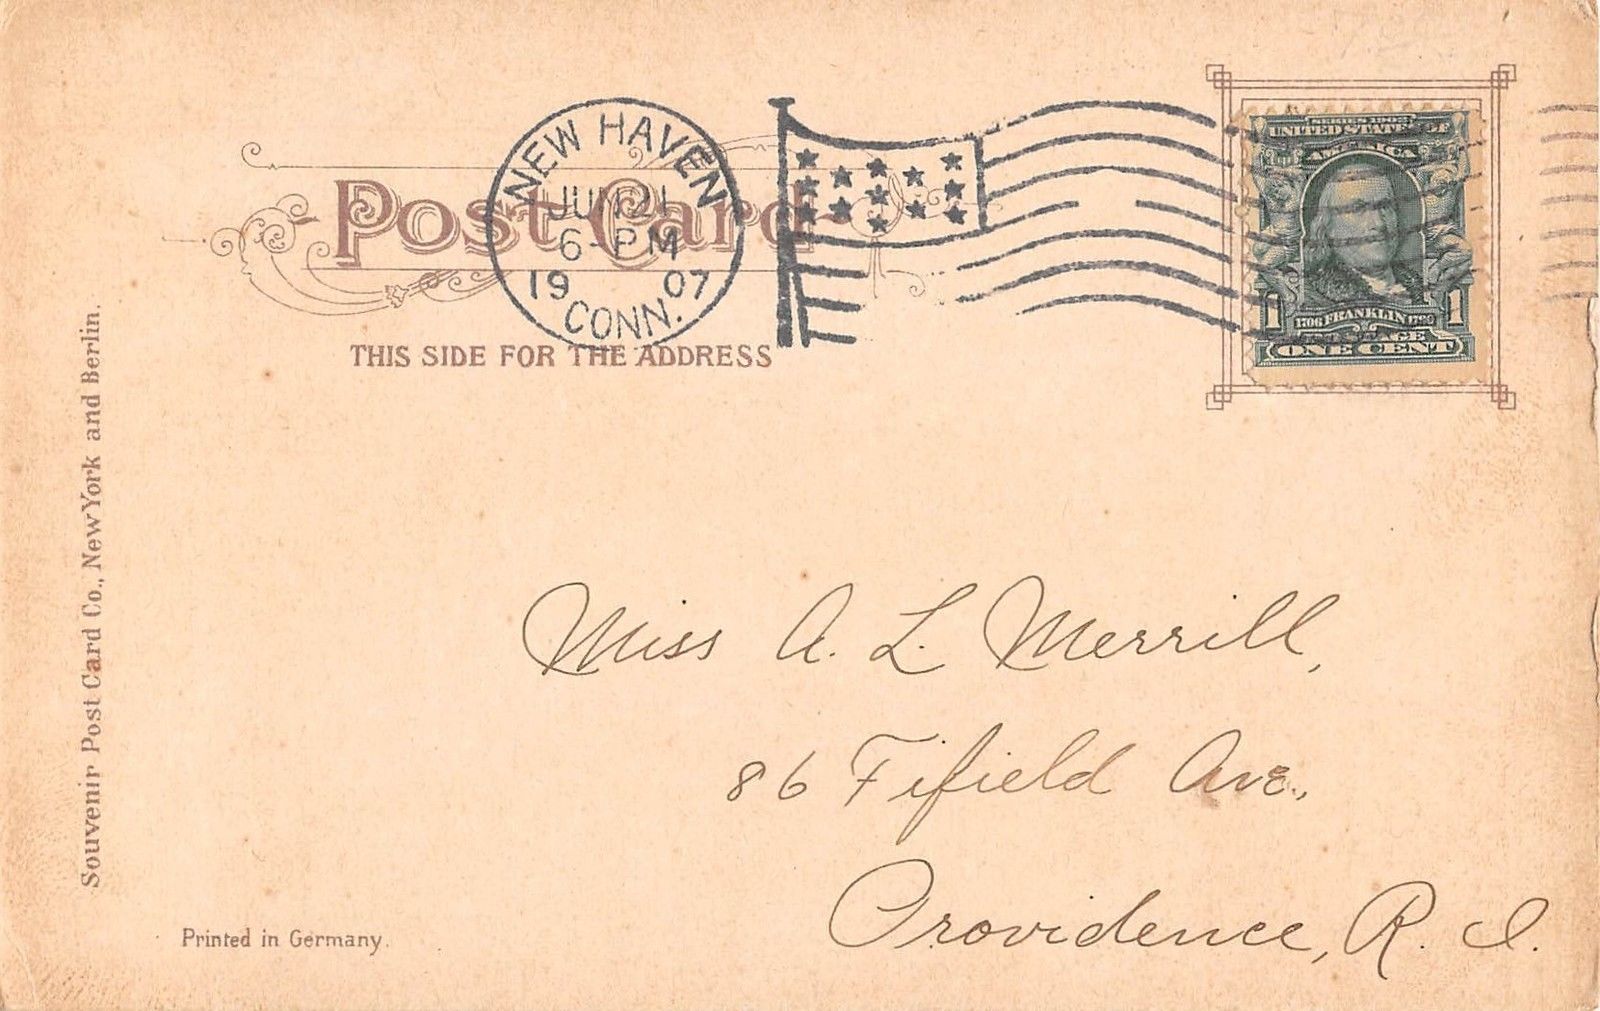 Post Card
NEW HAVEN
JUN 21
6-PM
1907
CONN.
SERIES 1902
UNITED STATES OF
AMERICA
1706 FRANKLIN 1790
POSTAGE
1 ONE CENT 1
THIS SIDE FOR THE ADDRESS
Souvenir Post Card Co., New York and Berlin.
Miss A. L. Merrill,
86 Fifield Ave.,
Providence, R. I.
Printed in Germany.